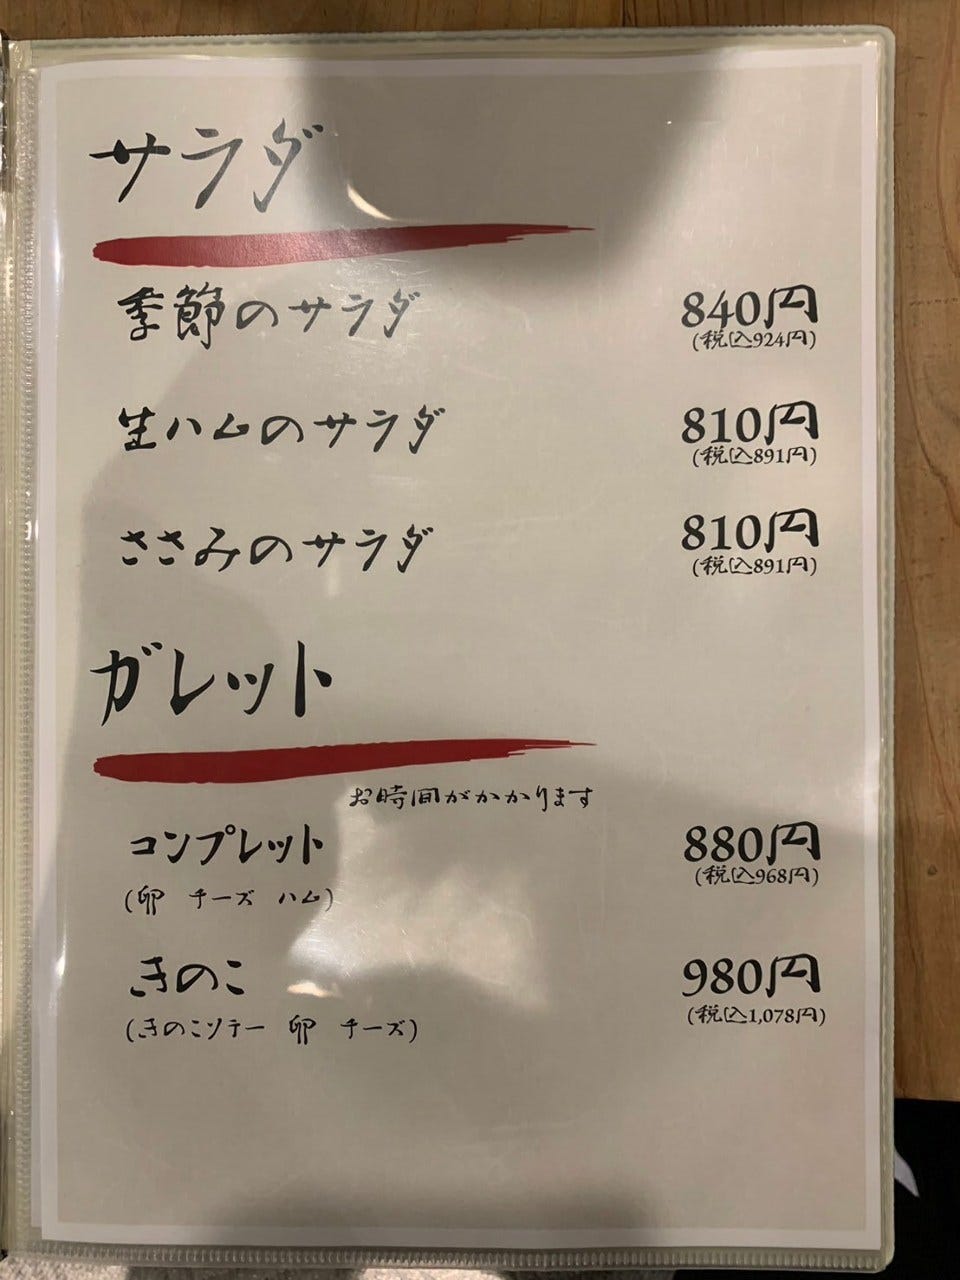 サラダ
季節のサラダ 840円
(税込924円)
生ハムのサラダ 810円
(税込891円)
ささみのサラダ 810円
(税込891円)
ガレット
お時間がかかります
コンプレット 880円
(税込968円)
(卵 チーズ ハム)
きのこ 980円
(税込1,078円)
(きのこソテー 卵 チーズ)